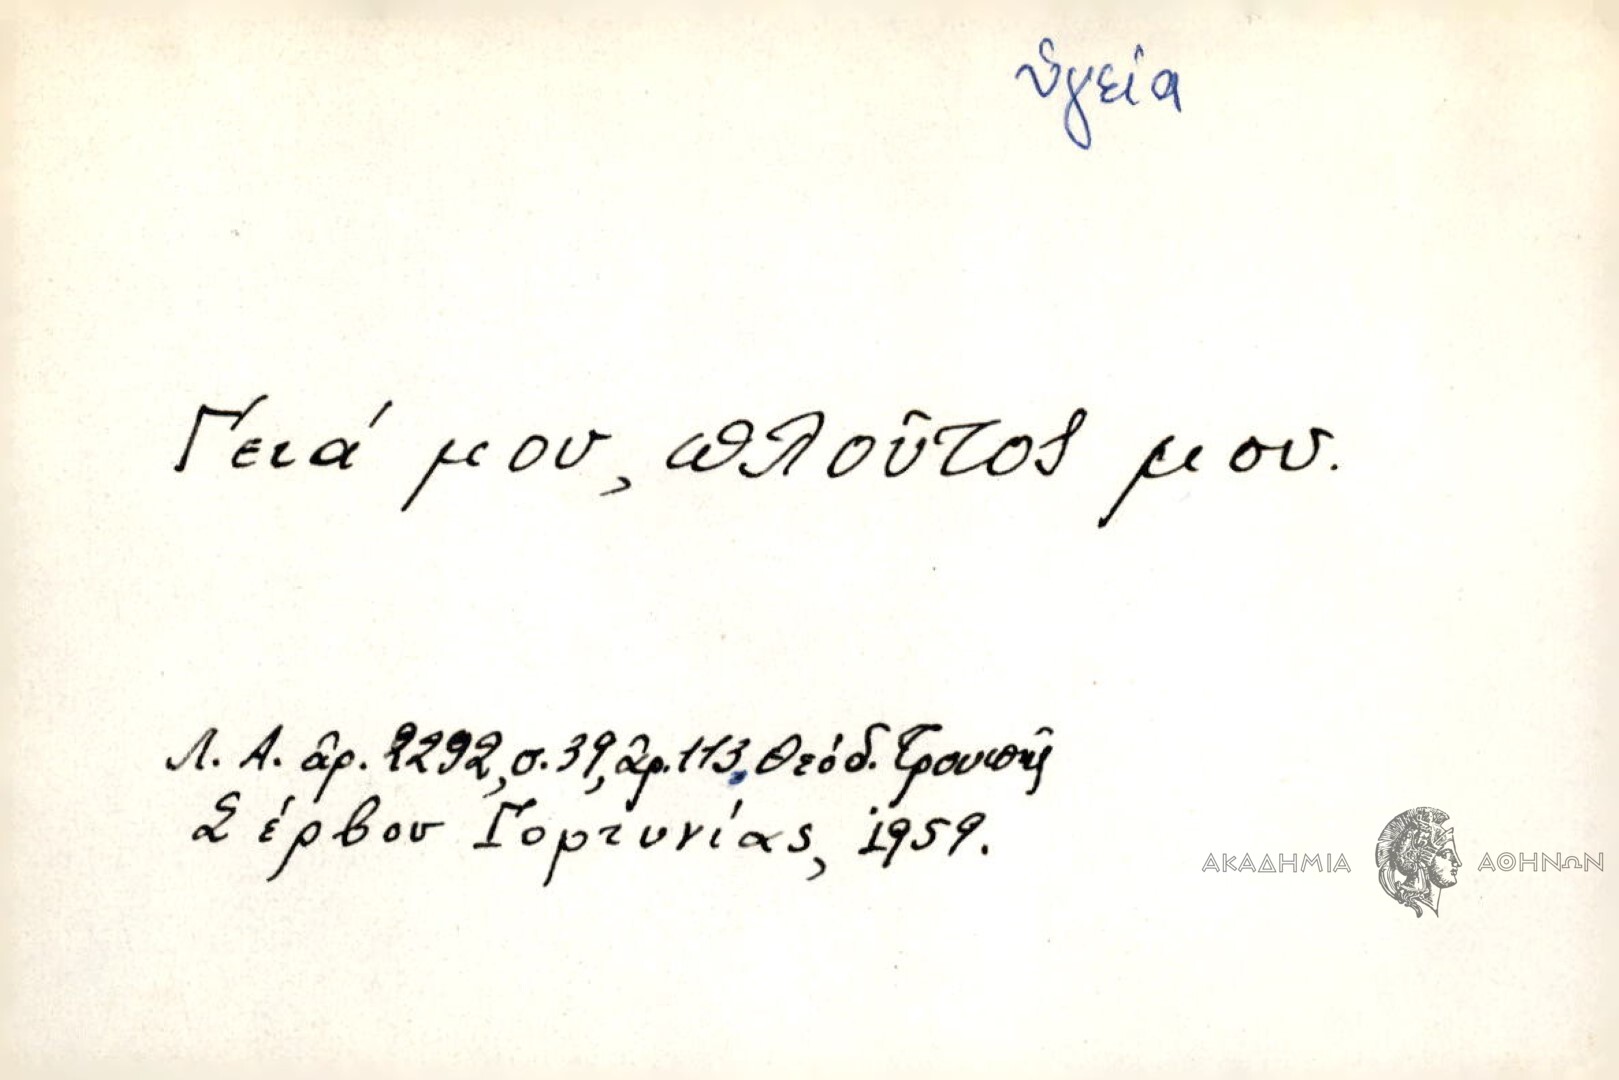 ὑγεία
Γειά μου, πλοῦτος μου.
Λ. Α. ἀρ. 2292, σ. 39, ἀρ. 113, Θεόδ. Τρουπῆς
Σέρβου Γορτυνίας, 1959.
ΑΚΑΔΗΜΙΑ ΑΘΗΝΩΝ